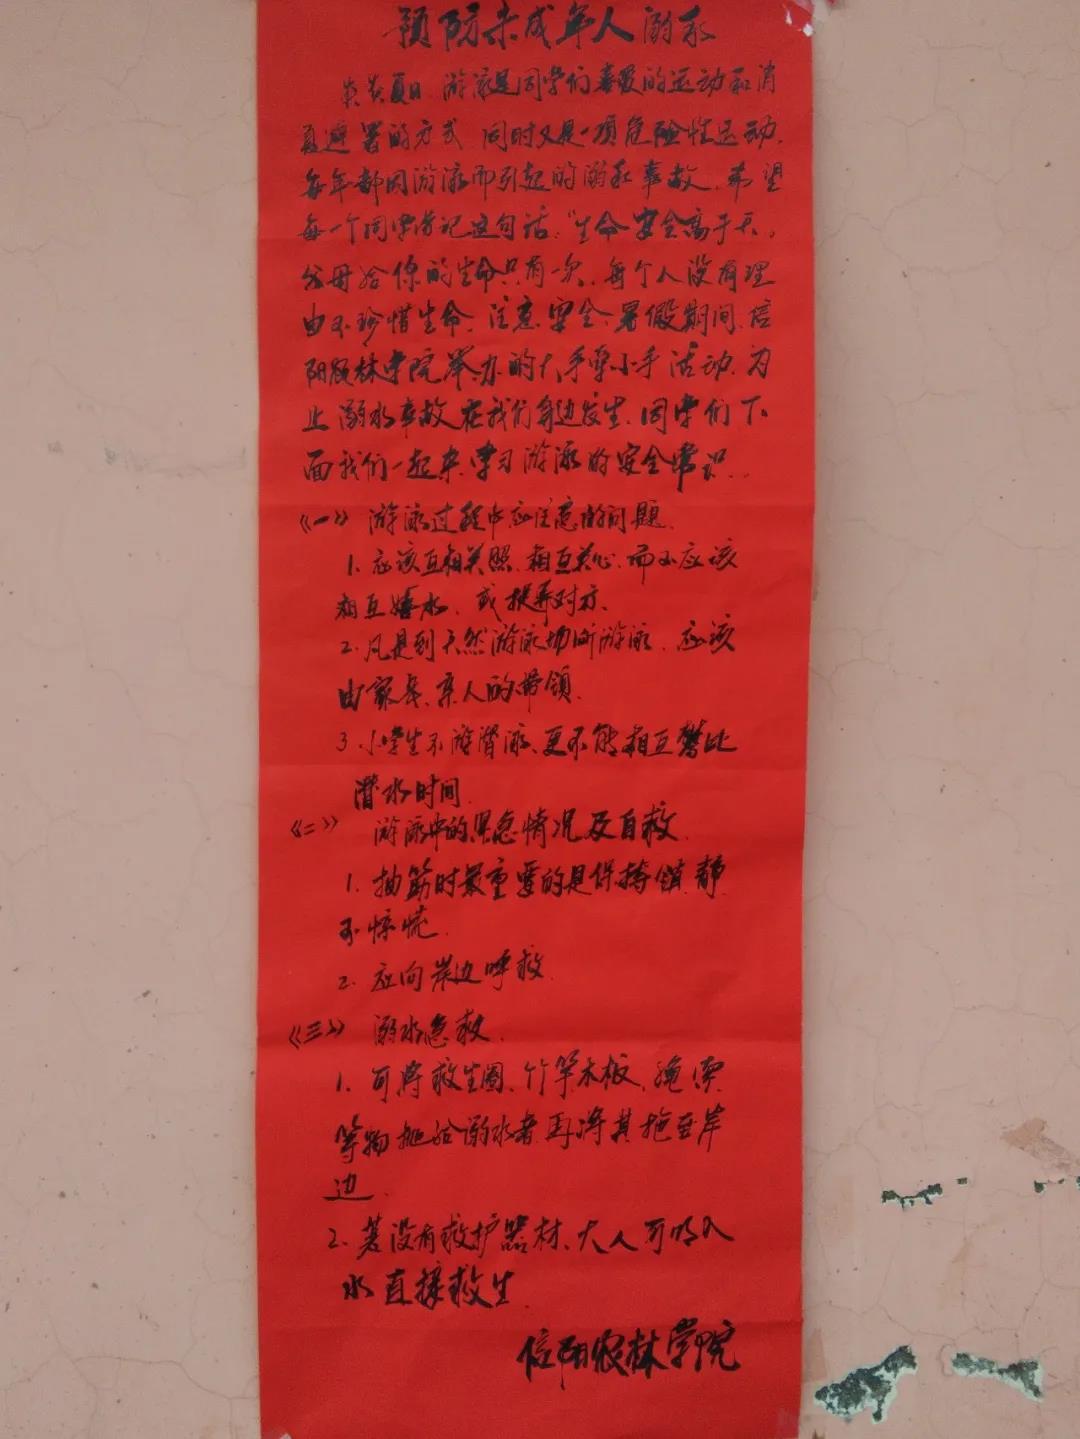 预防未成年人溺水
炎炎夏日,游泳是同学们喜爱的运动和消
夏避暑的方式 同时又是一项危险性运动,
每年都因游泳而引起的溺水事故,希望
每一个同学谨记这句话,"生命安全高于天,
父母给你的生命只有一次,每个人没有理
由不珍惜生命、注意安全,暑假期间,信
阳农林学院举办的大手牵小手活动,为
止溺水事故在我们身边发生,同学们下
面我们一起来学习游泳的安全常识...
《一》 游泳过程中应注意的问题.
1. 应该互相关照,相互关心,而不应该
相互嬉水,或捉弄对方.
2. 凡是到天然游泳场所游泳,应该
由家长、亲人的带领.
3 小学生不游潜泳,更不能相互攀比
潜水时间.
《二》 游泳中的紧急情况及自救.
1. 抽筋时最重要的是保持镇静
不惊慌.
2. 应向岸边呼救.
《三》 溺水急救.
1. 可将救生圈、竹竿、木板、绳索
等物抛给溺水者,再将其拖至岸
边.
2. 若没有救护器材、大人可入
水直接救生.
信阳农林学院